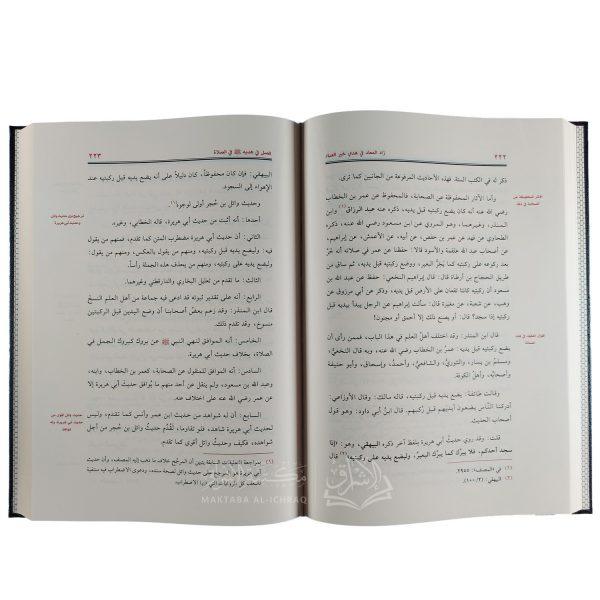 ٢٢٢
زاد المعاد في هدي خير العباد
ذكر له في الكتب الستة. فهذه الأحاديث المرفوعة من الجانبين كما ترى.
وأما الآثار المحفوظة عن الصحابة، فالمحفوظ عن عمر بن الخطاب
رضي الله عنه أنه كان يضع ركبتيه قبل يديه، ذكره عنه عبد الرزاق(١) وابن
المنذر، وغيرهما، وهو المروي عن ابن مسعود رضي الله عنه، ذكره
الطحاوي عن فهد عن عمر بن حفص، عن أبيه، عن الأعمش، عن إبراهيم،
عن أصحاب عبد الله علقمة والأسود قالا: حفظنا عن عمر في صلاته أنه خرَّ
بعد ركوعه على ركبتيه كما يخرُّ البعير، ووضع ركبتيه قبل يديه، ثم ساق من
طريق الحجاج بن أرطاة قال: قال إبراهيم النخعي: حفظ عن عبد الله بن
مسعود أن ركبتيه كانتا تقعان على الأرض قبل يديه، وذكر عن أبي مرزوق عن
وهب، عن شعبة، عن مغيرة قال: سألت إبراهيم عن الرجل يبدأ بيديه قبل
ركبتيه إذا سجد؟ قال: أو يصنع ذلك إلا أحمق أو مجنون!
قال ابن المنذر: وقد اختلف أهلُ العلم في هذا الباب، فممن رأى أن
يضع ركبتيه قبل يديه: عمرُ بن الخطاب رضي الله عنه، وبه قال النخعيُّ،
ومسلمُ بن يسار، والثوريُّ، والشافعيُّ، وأحمدُ، وإسحاق، وأبو حنيفة
وأصحابُه، وأهلُ الكوفة.
وقالت طائفة: يضع يديه قبل ركبتيه، قاله مالك: وقال الأوزاعي:
أدركنا النَّاس يضعون أيديهم قبل رُكبهم. قال ابنُ أبي داود: وهو قول
أصحاب الحديث.
قلت: وقد روي حديثُ أبي هريرة بلفظ آخر ذكره البيهقي، وهو: «إذا
سجد أحدكم، فلا يبرُك كما يبرُك البعيرُ، وليضع يديه على ركبتيه»(٢) قال
(١) في «المصنف»: ٢٩٥٥.
(٢) البيهقي: (١٠٠/٢).
٢٢٣
فصل في هديه ﷺ في الصلاة
البيهقي: فإن كان محفوظاً، كان دليلاً على أنه يضع يديه قبل ركبتيه عند
الإهواء إلى السجود.
وحديث وائل بن حُجر أولى لوجوه(١).
أحدها: أنه أثبت من حديث أبي هريرة، قاله الخطابي، وغيره.
الثاني: أن حديث أبي هريرة مضطرب المتن كما تقدم، فمنهم من يقول
فيه: وليضع يديه قبل ركبتيه، ومنهم من يقول بالعكس، ومنهم من يقول:
وليضع يديه على ركبتيه، ومنهم من يحذف هذه الجملة رأساً.
الثالث: ما تقدم من تعليل البخاري والدارقطني وغيرهما.
الرابع: أنه على تقدير ثبوته قد ادعى فيه جماعة من أهل العلم النسخ
قال ابن المنذر: وقد زعم بعضُ أصحابنا أن وضع اليدين قبل الركبتين
منسوخ، وقد تقدم ذلك.
الخامس: أنه الموافق لنهي النبي ﷺ عن بروك كبروك الجمل في
الصلاة، بخلاف حديث أبي هريرة.
السادس: أنه الموافق للمنقول عن الصحابة، كعمر بن الخطاب، وابنه،
وعبد الله بن مسعود، ولم ينقل عن أحد منهم ما يُوافق حديثَ أبي هريرة إلا
عن عمر رضي الله عنه على اختلاف عنه.
السابع: أن له شواهد من حديث ابن عمر وأنس كما تقدم، وليس
لحديث أبي هريرة شاهد، فلو تقاوما، لقُدِّم حديثُ وائل بن حُجر من أجل
شواهده، فكيف وحديثُ وائل أقوى كما تقدم.
MAKTABA AL-ICHRAQ